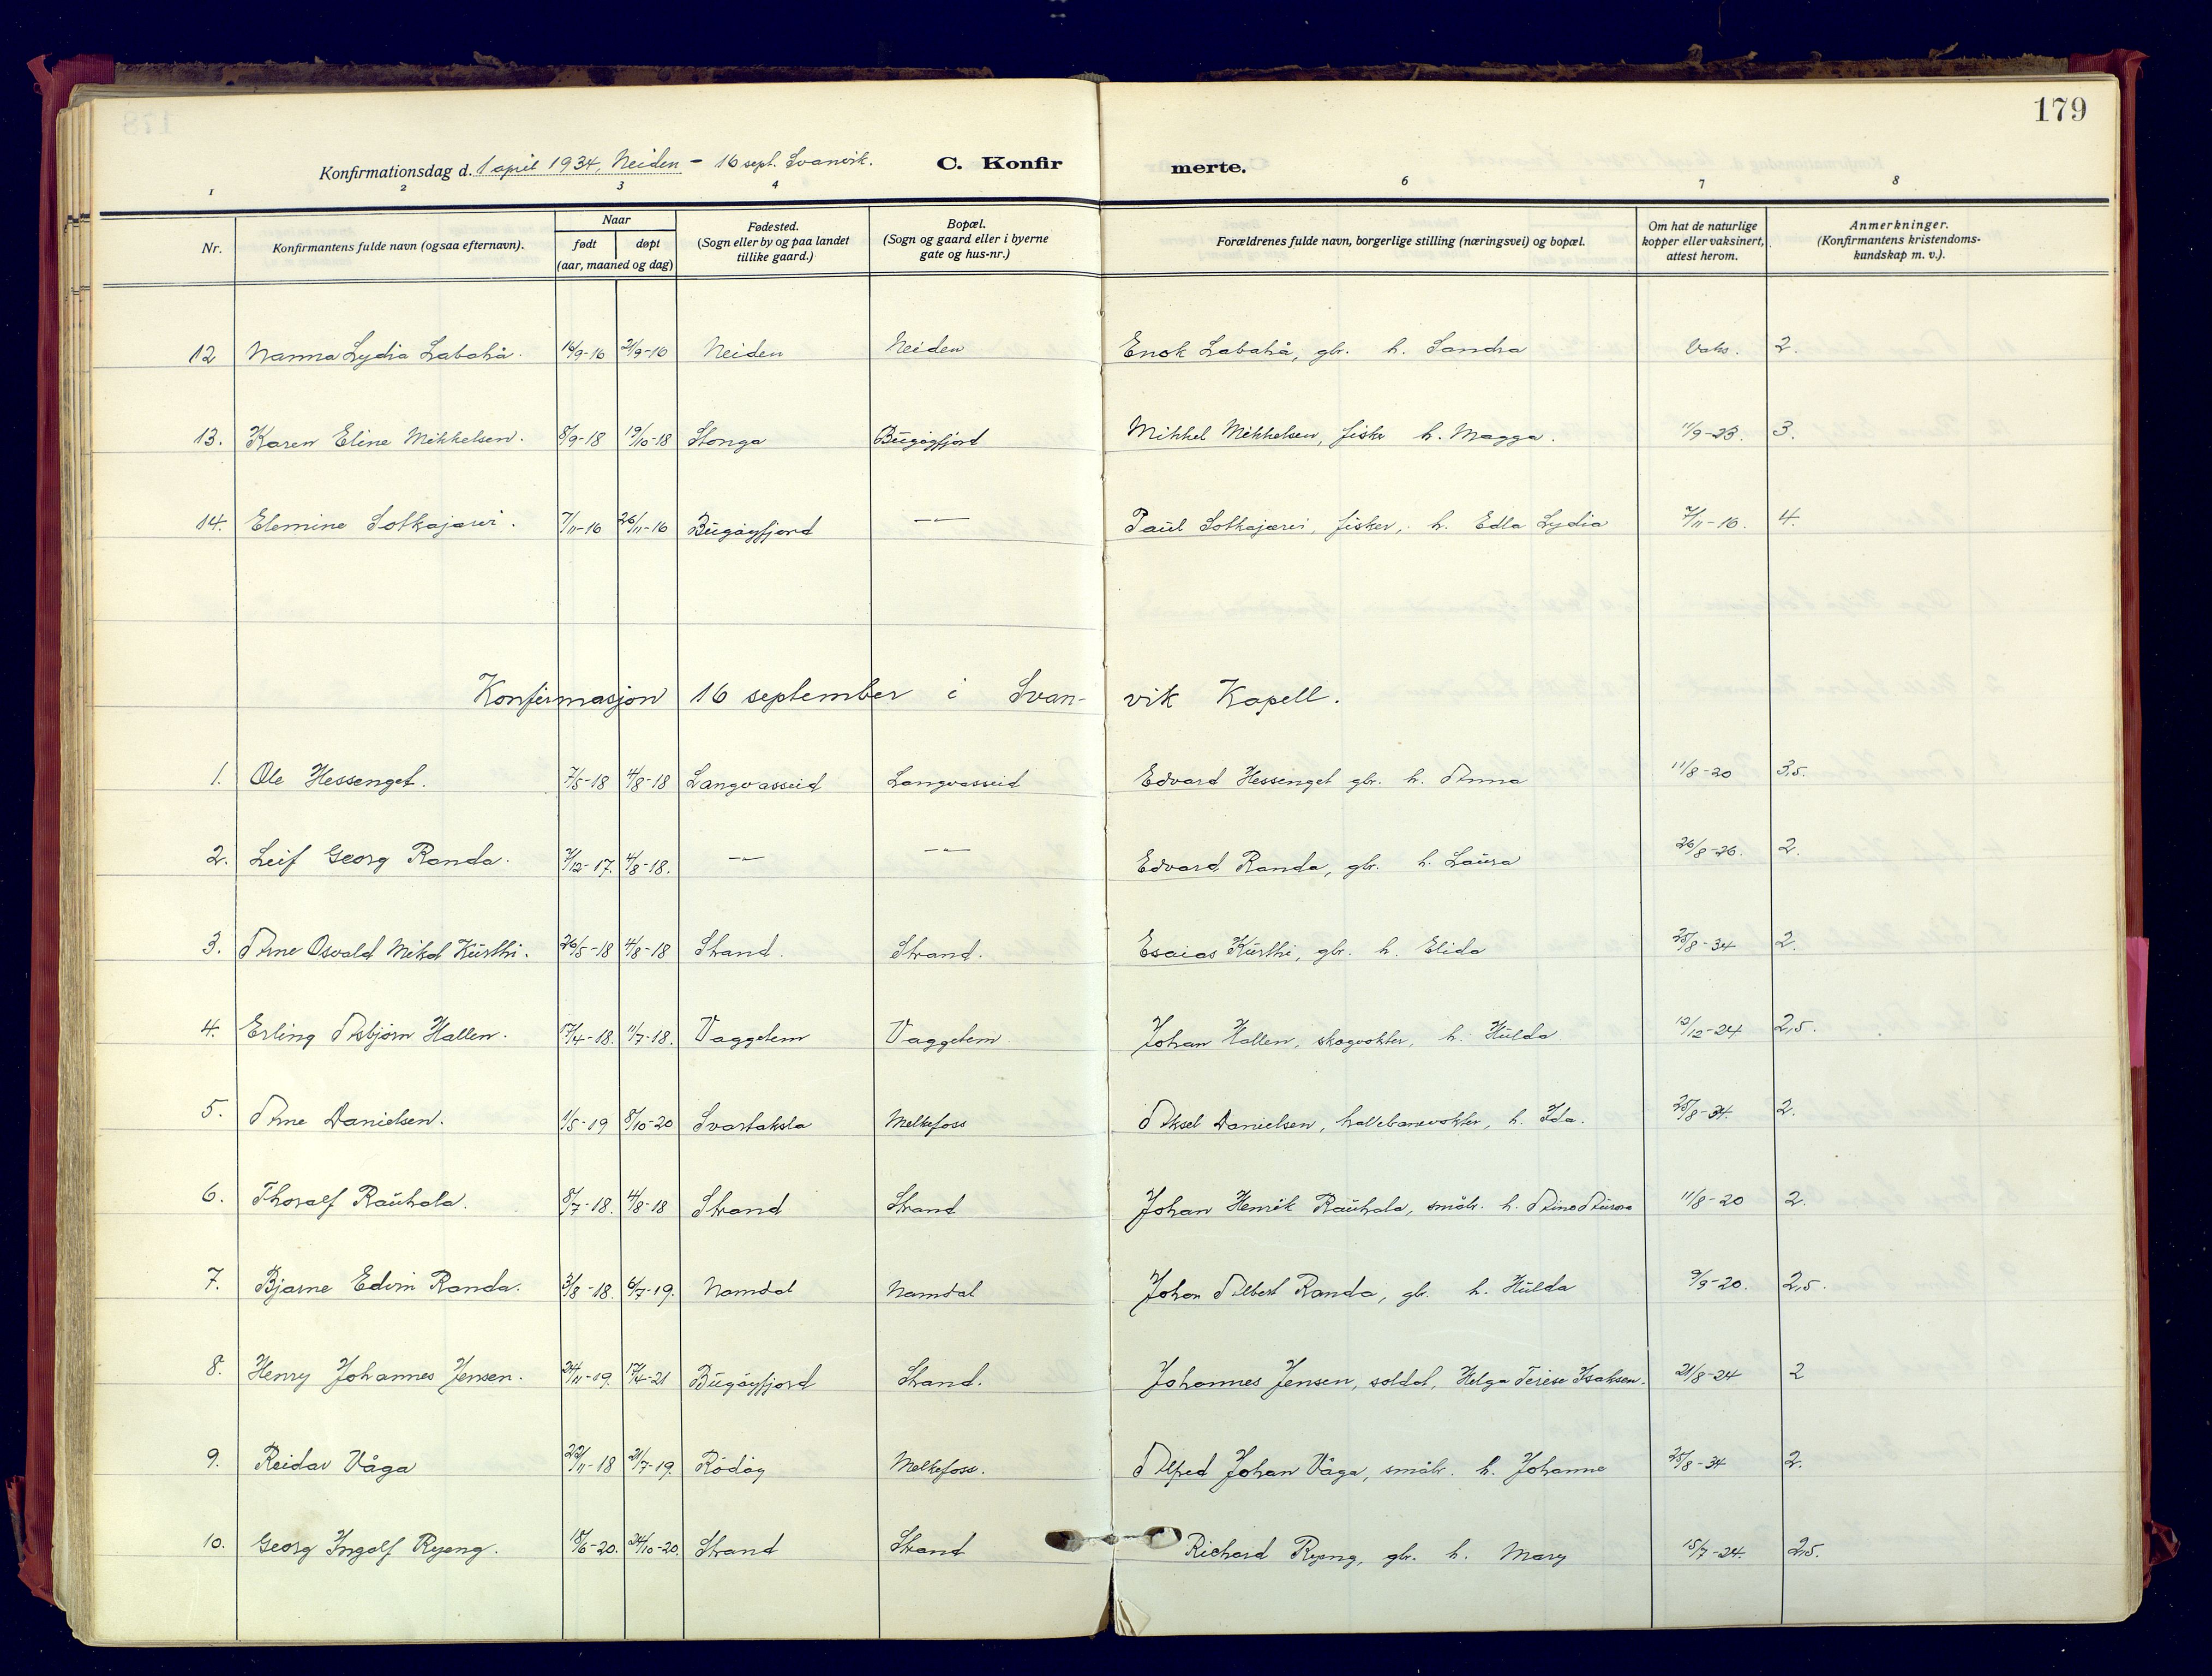 179
Konfirmationsdag d. 1 april 1934, Neiden - 16 sept. Svanvik. C. Konfirmerte.
1 2 3 4 6 7 8
Nr. Konfirmantens fulde navn (ogsaa efternavn). Naar født døpt (aar, maaned og dag) Fødested. (Sogn eller by og paa landet tillike gaard.) Bopæl. (Sogn og gaard eller i byerne gate og hus-nr.) Forældrenes fulde navn, borgerlige stilling (næringsvei) og bopæl. Om hat de naturlige kopper eller vaksinert, attest herom. Anmerkninger. (Konfirmantens kristendoms-kundskap m. v.).
12 Nanna Lydia Labahå. 14/9-16 21/9-16 Neiden Neiden Enok Labahå, gbr. h. Sandra Vaks. 2.
13. Karen Eline Mikkelsen. 8/9-18 19/10-18 Stonga Bugøyfjord Mikkel Mikkelsen, fisker h. Magga. 11/9-23. 3.
14. Elemine Sotkajærvi. 7/11-16 26/11-16 Bugøyfjord -"- Paul Sotkajærvi, fisker, h. Edla Lydia 7/11-16. 4.
Konfirmasjon 16 september i Svanvik Kapell.
1. Ole Hessenget. 7/5-18 4/8-18 Langvasseid Langvasseid Edvard Hessenget gbr. h. Anna 11/8-20 3,5.
2. Leif Georg Randa. 7/12-17. 4/8-18. -"- -"- Edvard Randa, gbr. h. Laura 26/8-26. 2.
3. Arne Osvald Mikal Kurthi. 26/5-18 4/8-18 Strand. Strand. Esaias Kurthi, gbr. h. Elida 25/8-34 2.
4. Erling Asbjørn Hallen. 17/4-18. 11/7-18. Vaggetem Vaggetem Johan Hallen, skogvokter, h. Hulda 12/12-24 2,5.
5. Arne Danielsen. 1/5-19 8/10-20 Svartaksla Melkefoss Aksel Danielsen, h. Ida. 25/8-34. 2.
6. Thoralf Rauhala. 8/7-18. 4/8-18 Strand Strand Johan Henrik Rauhala, småbr. h. Aina Aurora 11/8-20 2.
7. Bjarne Edvin Randa. 3/8-18. 6/7-19. Namdal Namdal Johan Albert Randa, gbr. h. Hulda 9/9-20. 2,5.
8. Henry Johannes Jensen. 24/11-19. 17/4-21 Bugøyfjord Strand. Johannes Jensen, soldat, Helga Terese Isaksen. 21/8-24 2
9. Reidar Våga 22/11-18 21/7-19. Rødøy Melkefoss. Alfred Johan Våga, småbr. h. Johanne 25/8-34 2.
10. Georg Ingolf Ryeng. 18/6-20. 24/10-20. Strand Strand Richard Ryeng, gbr. h. Mary 15/7-24. 2,5.